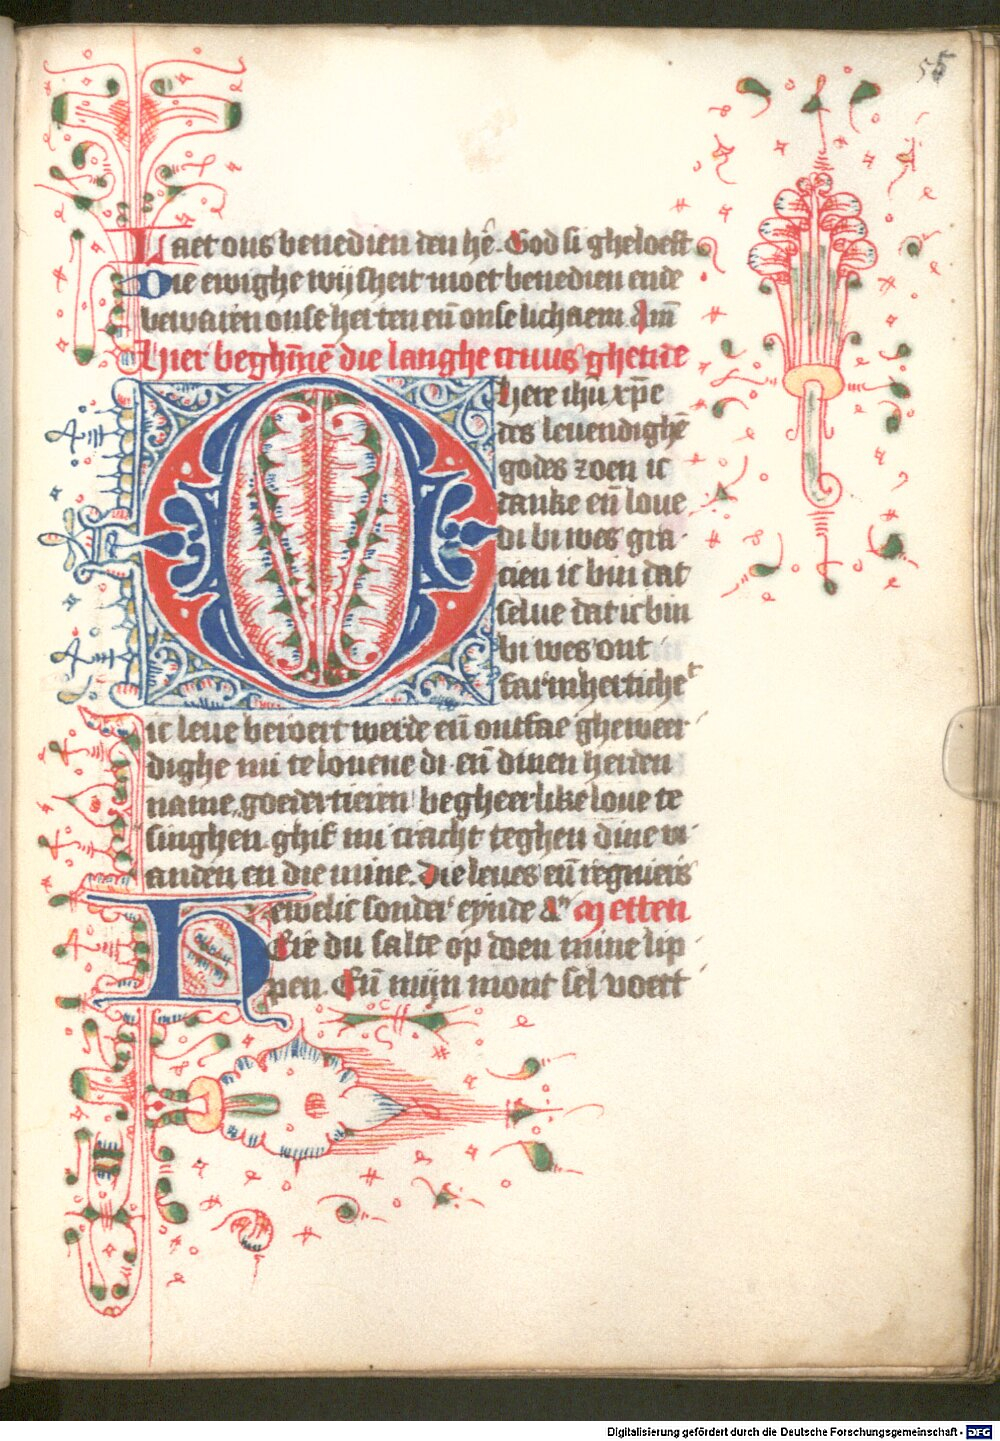 55
Laet ons benedien den hē. God si gheloeft
Die ewighe wijsheit moet benedien ende
bewaren onse herten en̄ onse lichaem Am̄
Hier beghīnē die langhe cruus ghetide
O here ihū xp̄e
des leuendighē
godes zoen ic
danke en̄ loue
di bi wes gra
cien ic bin dat
selue dat ic bin
bi wes ont
farmhertiche
ic leue beroert werde en̄ ontfae ghewer
dighe mi te louene di en̄ dinen heilen
name goedertieren begheerlike loue te
singhen ghif mi cracht teghen dine vi
anden en die mine. Die leues en̄ regniers
ewelic sonder eynde A Metten
Here du salte op doen mine lip
pen. En̄ mijn mont sel voert
Digitalisierung gefördert durch die Deutsche Forschungsgemeinschaft - DFG